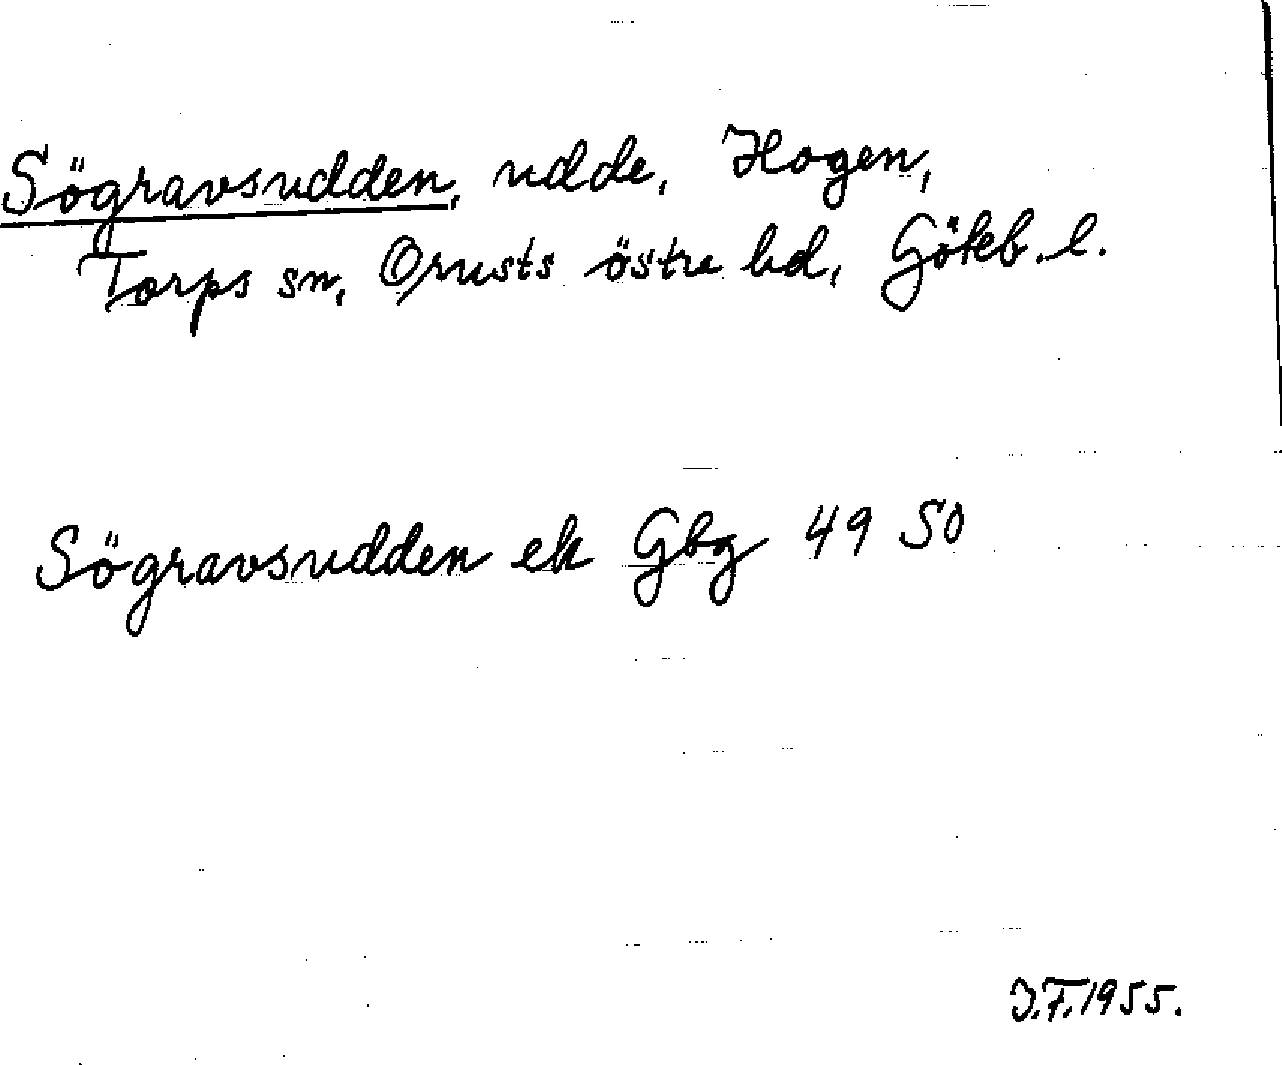 Sögravsudden, udde, Hogen,
Torps sn, Orusts östra hd, Göteb. l.
Sögravsudden ek Gbg 49 SO
J.F.1955.